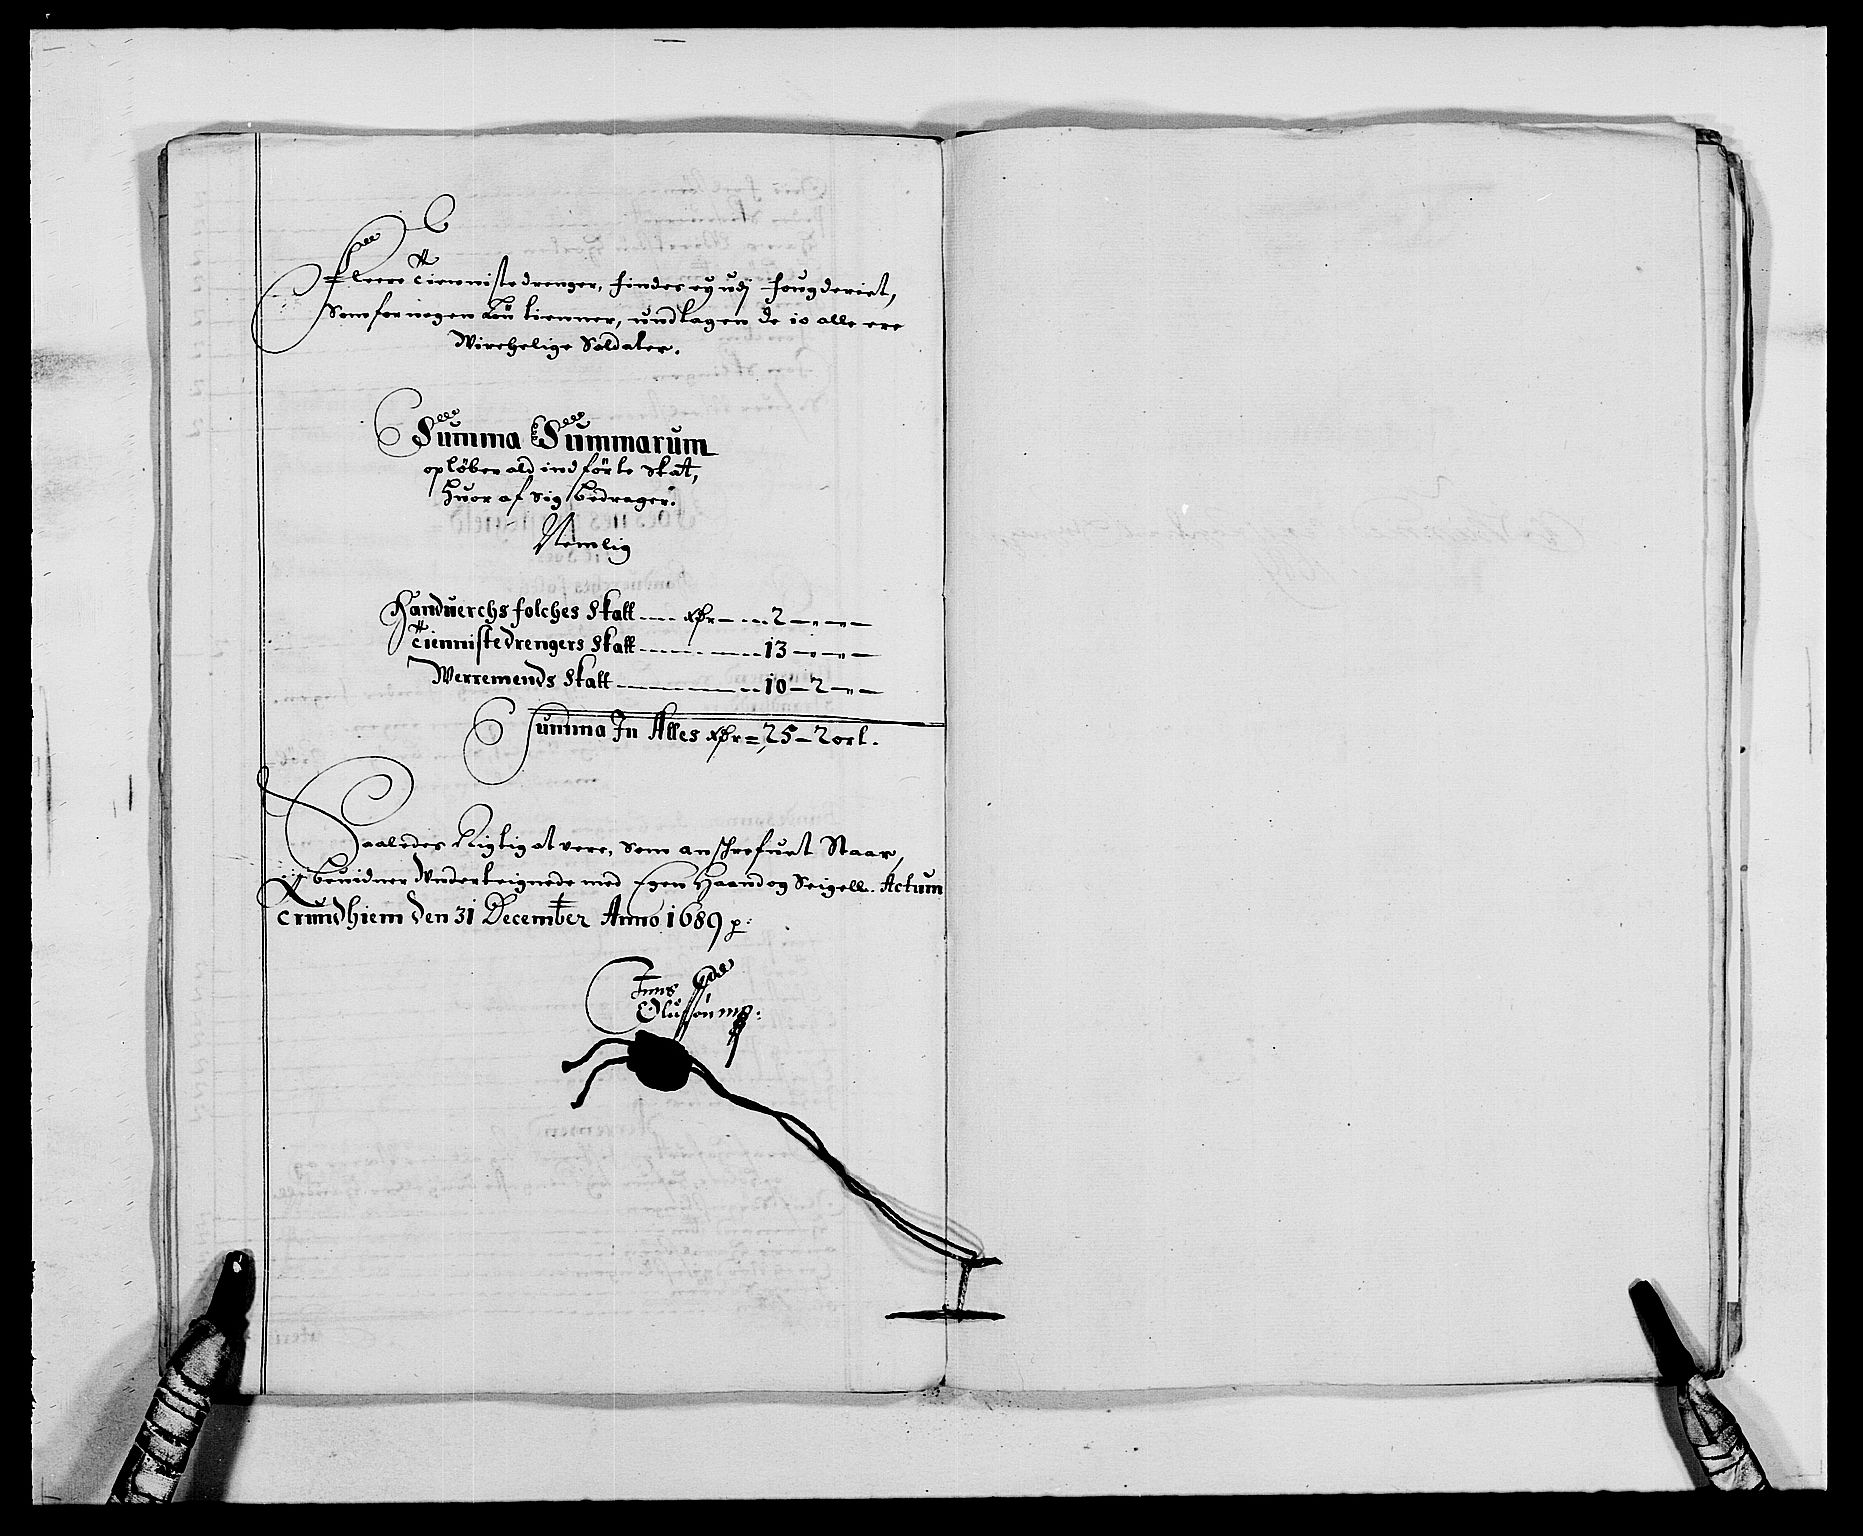 Fleere Tiennistedrenger, findes ey udj fougderiet,
Som for nogen Løn tienner, undtagen de io alle ere
Wirchelige Soldater.
Summa Summarum
opløber ald indførte Skat,
huor af sig bedrager.
Nemlig
Handuerchs folches Skatt — Rdr — 2 — „ — „ —
Tiennistedrengers Skatt — 13 — „ — „ —
Werremends Skatt — 10 — 2 — „ —
Summa In Alles Rdr = 25 — 2 ort.
Saaledes Rigtig at vere, Som anschrefuet Staar,
Beuidner Underteignede med Egen Haand og Seigell. Actum
Trundhiem den 31 December Anno 1689 p:
Jens
Olufsøn mp: